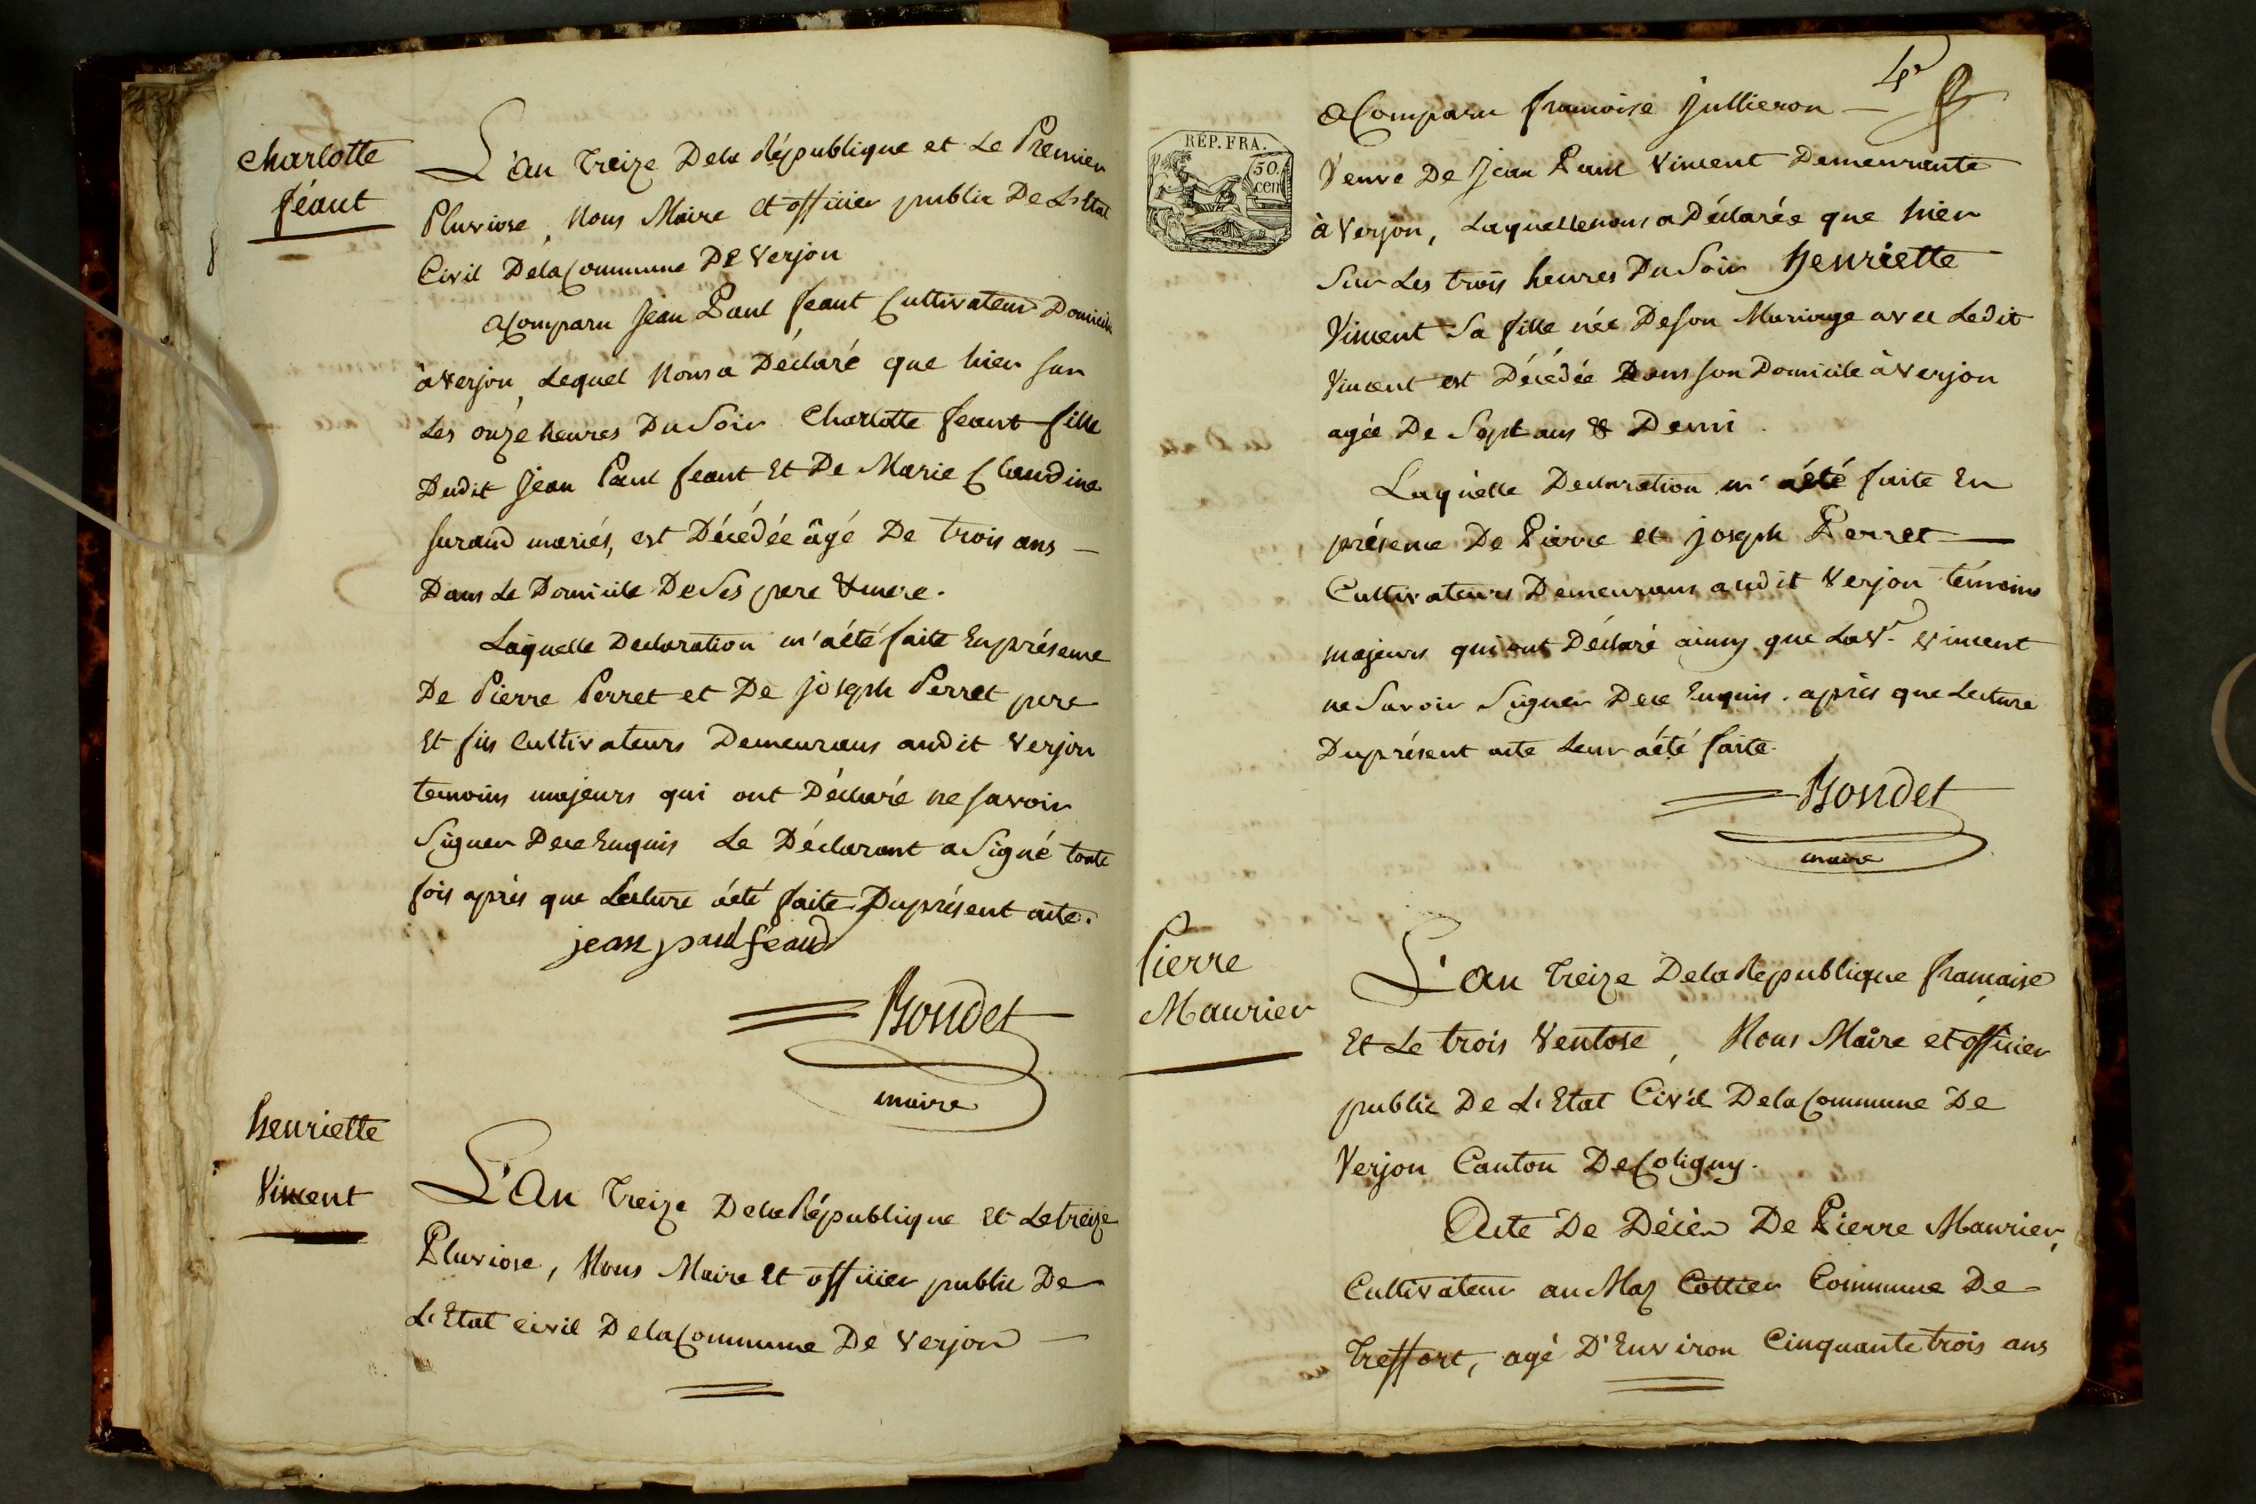 Charlotte
féaut
L'an treize Dela République et Le Premier
Pluviose, Nous Maire et officier public De L'Etat
Civil Dela Commune De Verjon
a Comparu Jean Paul feaut Cultivateur Domicilié
à Verjon, Lequel Nous a Déclaré que hier sur
Les onze heures Du Soir Charlotte feaut fille
Dudit Jean Paul feaut Et De Marie Claudine
furaud mariés, est Décédée âgé De trois ans —
Dans Le Domicile De Ses pere & mere.
Laquelle Declaration m'a été faite En présence
De Pierre Perret et De joseph Perret pere
Et fils Cultivateurs Demeurans audit Verjon
temoins majeurs qui ont Déclaré ne savoir
Signer De ce Enquis Le Déclarant a Signé toute
fois après que Lecture a été faite Du présent acte.
jean paul féaud
Bondet
maire
henriette
Vincent
L'An treize Dela République Et Le treize
Pluviose, Nous Maire Et officier public De
L'Etat civil Dela Commune De Verjon —
4e
a Comparu francoise Jullieron —
Veuve De Jean Paul Vincent Demeurante
RÉP. FRA.
50.
cen
à Verjon, Laquelle nous a Déclarée que hier
Sur Les trois heures Du Soir henriette
Vincent Sa fille née De Son Mariage avec Ledit
Vincent est Décédée Dans son Domicile à Verjon
agée De Sept ans & Demi.
Laquelle Declaration m'a été faite En
présence De Pierre et joseph Perret —
Cultivateurs Demeurans audit Verjon témoins
majeurs qui ont Déclaré ainsy que La Ve. Vincent
ne Savoir Signer De ce Enquis. après que Lecture
Du présent acte Leur a été faite.
Bondet
maire
Pierre
Maurier
L'an treize Dela République francaise
Et Le trois Ventose, Nous Maire et officier
public De L'Etat Civil Dela Commune De
Verjon Canton De Coligny.
Acte De Décès De Pierre Maurier,
Cultivateur au Maz Cottier Commune De
Treffort, agé D'Environ Cinquante trois ans